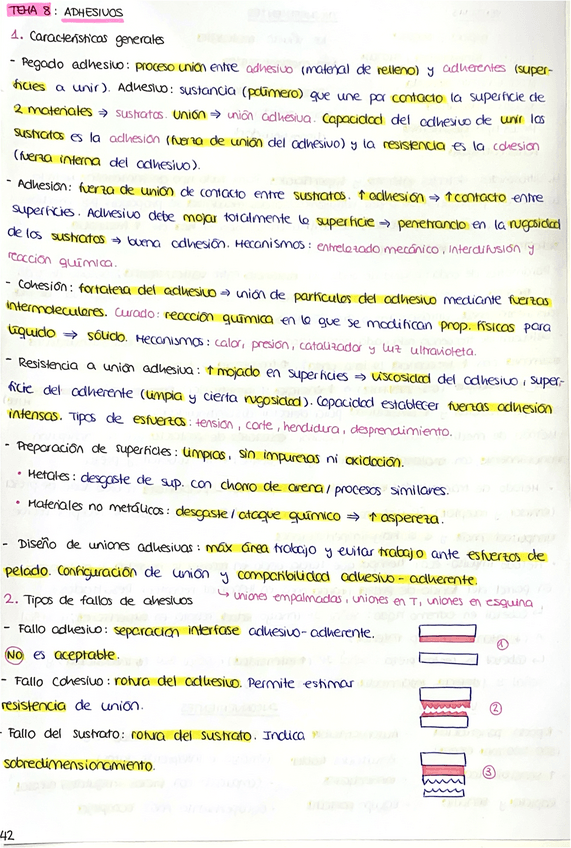 TEMA 8: ADHESIVOS
1. Características generales
- Pegado adhesivo: proceso unión entre adhesivo (material de relleno) y adherentes (super-
ficies a unir). Adhesivo: sustancia (polímero) que une por contacto la superficie de
2 materiales ⇒ sustratos. Unión → unión adhesiva. Capacidad del adhesivo de unir los
sustratos es la adhesión (fuerza de unión del adhesivo) y la resistencia es la cohesión
(fuerza interna del adhesivo).
- Adhesión: fuerza de unión de contacto entre sustratos. ↑ adhesión ⇒ ↑ contacto entre
superficies. Adhesivo debe mojar totalmente la superficie ⇒ penetrando en la rugosidad
de los sustratos → buena adhesión. Mecanismos: entrelazado mecánico, interdifusión y
reacción química.
- Cohesión: fortaleza del adhesivo ⇒ unión de partículas del adhesivo mediante fuerzas
intermoleculares. Curado: reacción química en la que se modifican prop. físicas para
líquido ⇒ sólido. Mecanismos: calor, presión, catalizador y luz ultravioleta.
- Resistencia a unión adhesiva: ↑ mojado en superficies ⇒ viscosidad del adhesivo, super-
ficie del adherente (limpia y cierta rugosidad). Capacidad establecer fuerzas adhesión
intensas. Tipos de esfuerzos: tensión, corte, hendidura, desprendimiento.
- Preparación de superficies: limpias, sin impurezas ni oxidación.
• Metales: desgaste de sup. con chorro de arena / procesos similares.
• Materiales no metálicos: desgaste / ataque químico ⇒ ↑ aspereza.
- Diseño de uniones adhesivas: máx área trabajo y evitar trabajo ante esfuerzos de
pelado. Configuración de unión y compatibilidad adhesivo - adherente.
↳ uniones empalmadas, uniones en T, uniones en esquina
2. Tipos de fallos de ahesivos
- Fallo adhesivo: separación interfase adhesivo-adherente.
No es aceptable.
①
- Fallo cohesivo: rotura del adhesivo. Permite estimar
resistencia de unión.
②
- Fallo del sustrato: rotura del sustrato. Indica
sobredimensionamiento.
③
42